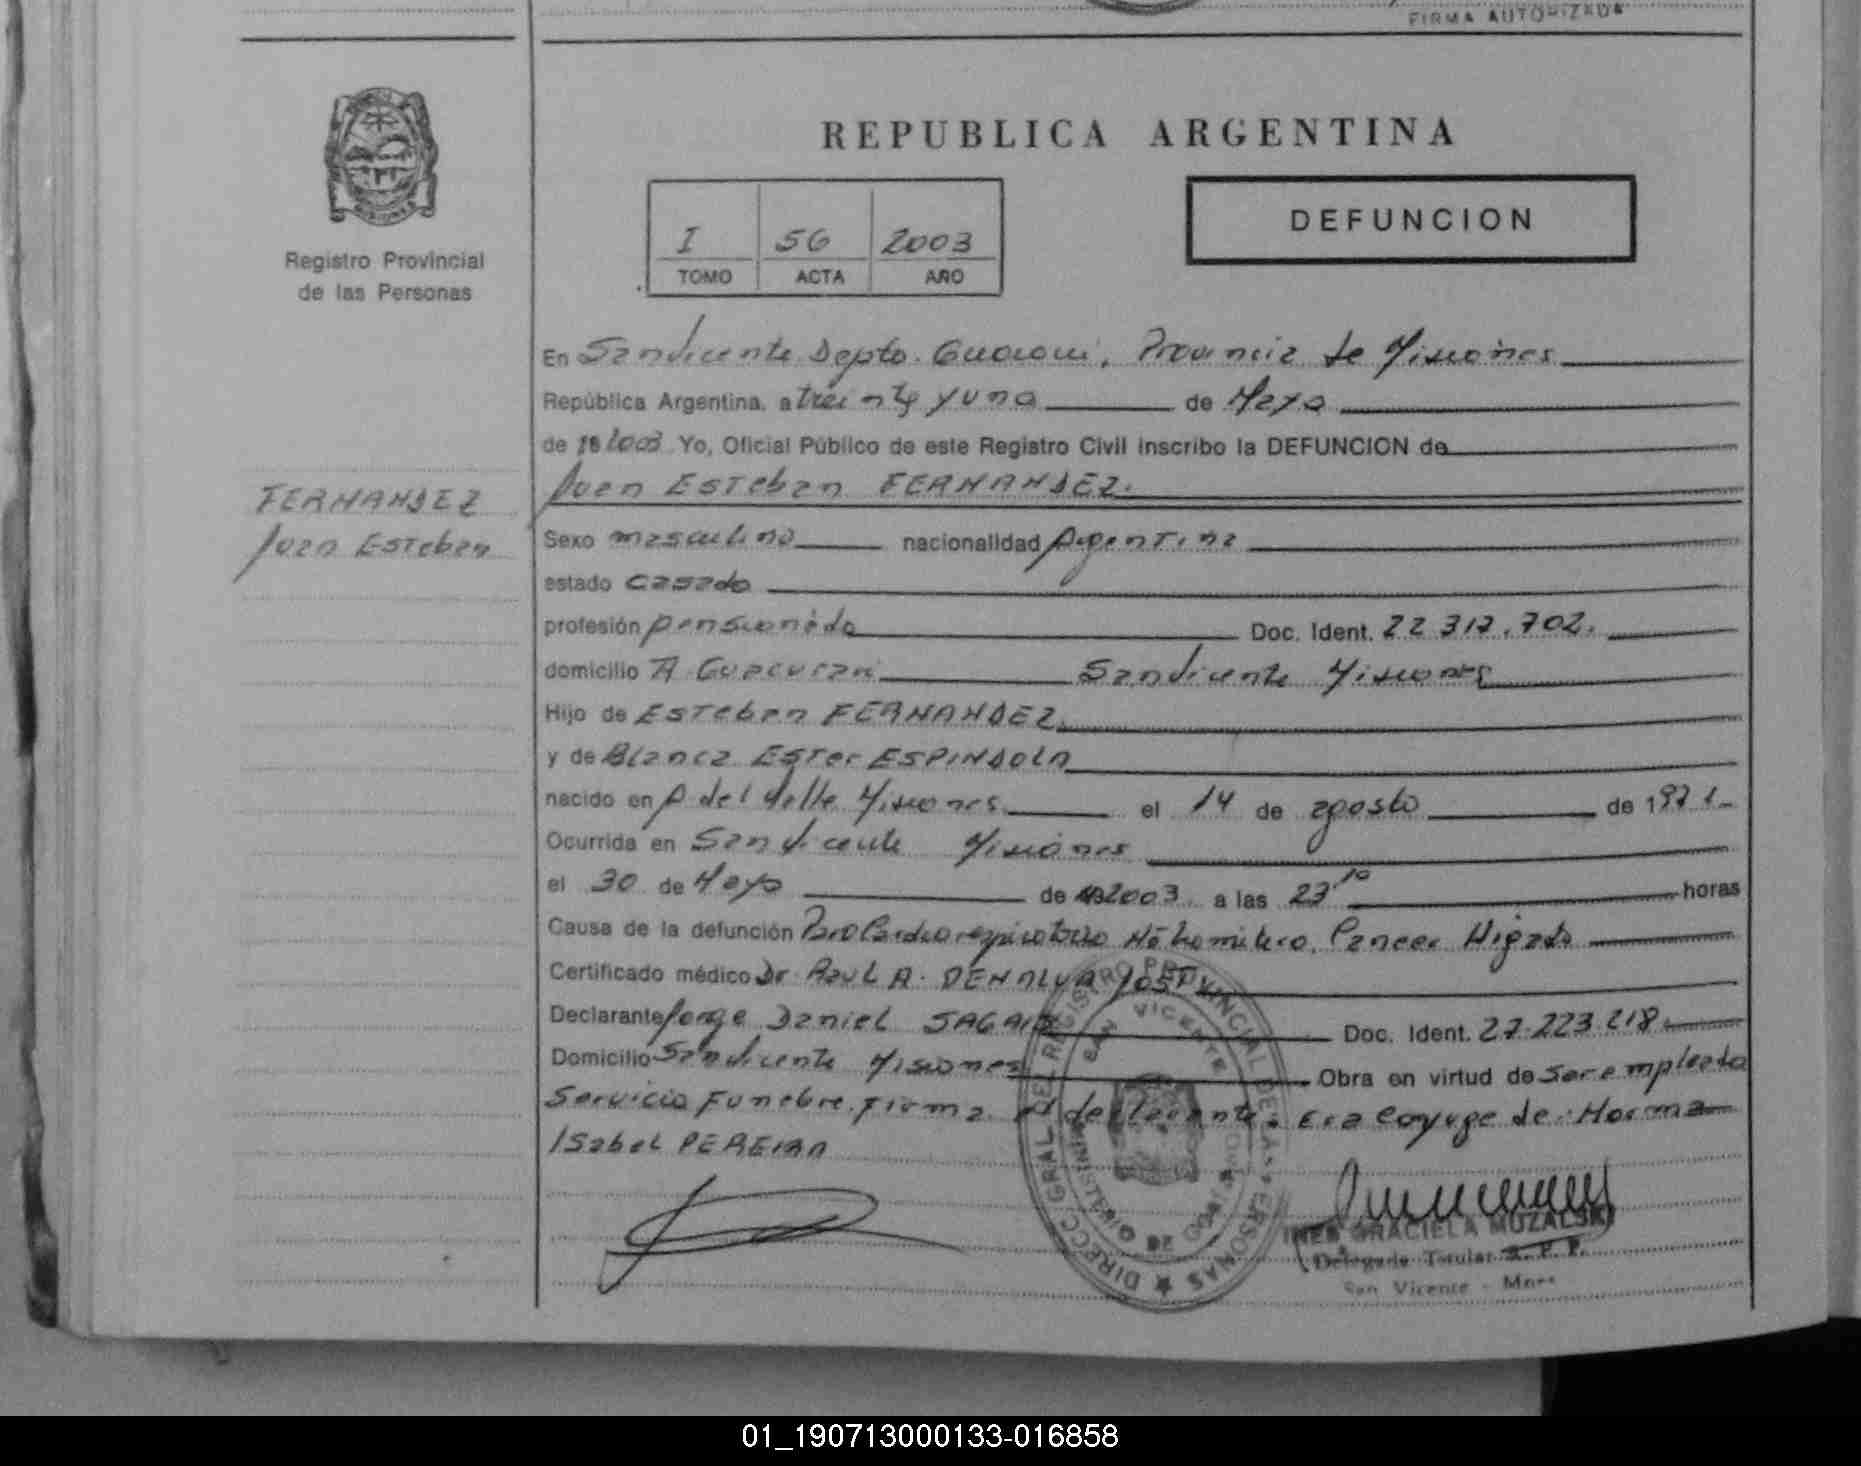 FIRMA AUTORIZADA
REPUBLICA ARGENTINA
DEFUNCION
I 56 2003
TOMO ACTA AÑO
MISIONES
Registro Provincial
de las Personas
En San Vicente Depto. Guarani, Provincia de Misiones
República Argentina, a treinta y uno de Mayo
de 19 2003 Yo, Oficial Público de este Registro Civil inscribo la DEFUNCION de
Juan Esteban FERNANDEZ.
FERNANDEZ
Juan Esteban
Sexo masculino nacionalidad Argentina
estado casado
profesión pensionado Doc. Ident. 22.317.702.
domicilio A. Guacurari San Vicente Misiones
Hijo de Esteban FERNANDEZ
y de Blanca Ester ESPINDOLA
nacido en A del Valle Misiones el 14 de agosto de 1971.
Ocurrida en San Vicente Misiones
el 30 de Mayo de 2003 a las 23,10 horas
Causa de la defunción Paro Cardiorespiratorio No traumatico, Cancer Higado
Certificado médico Dr. Raul A. José
Declarante Jorge Daniel Doc. Ident. 27.223.218
Domicilio San Vicente Misiones Obra en virtud de ser empleado
Servicio Funebre. Firma el declarante. Era Conyuge de Norma
Isabel PEREIRA
DIRECC. GRAL. DEL REGISTRO PROVINCIAL DE LAS PERSONAS
SAN VICENTE
INES GRACIELA MUZALSKI
Delegada Titular R. P. P.
San Vicente - Mnes
01_190713000133-016858